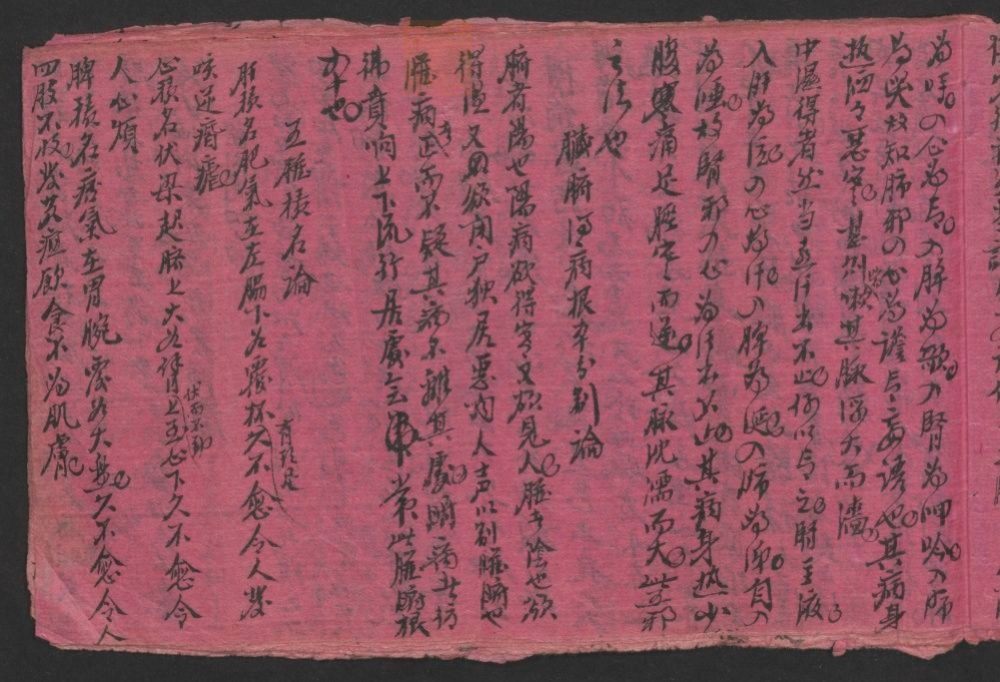 為呼入心為言入脾為歌入腎為呻吟入肺
為哭故知肺邪入心為譫言妄語也其病身
热洒々悪寒甚則喘咳其脉浮大而濇
中濕得者然当喜汗出不止何以言之腎主液
入肝為泣入心為汗入脾為涎入肺為涕自入
為唾故腎邪入心為汗出不止其病身热少
腹寒痛足脛寒而逆其脉沈濡而大此五邪
之法也
臟腑得病根本分别論
腑者陽也陽病欲得寒又欲見人臟者陰也欲
得温又欲闭户独居悪闻人声以别臟腑也
臟病止而不疑其病不離其處腑病者彷
彿賁响上下流行居處無常此臟腑根
本也
五臟積名論
肝積名肥氣在左脇下如覆杯有頭足久不愈令人发
咳逆痎瘧
心積名伏梁起臍上大如臂上至心下伏而不動久不愈令
人心煩
脾積名痞氣在胃脘覆如大盘久不愈令人
四肢不收发黄疸飲食不為肌膚